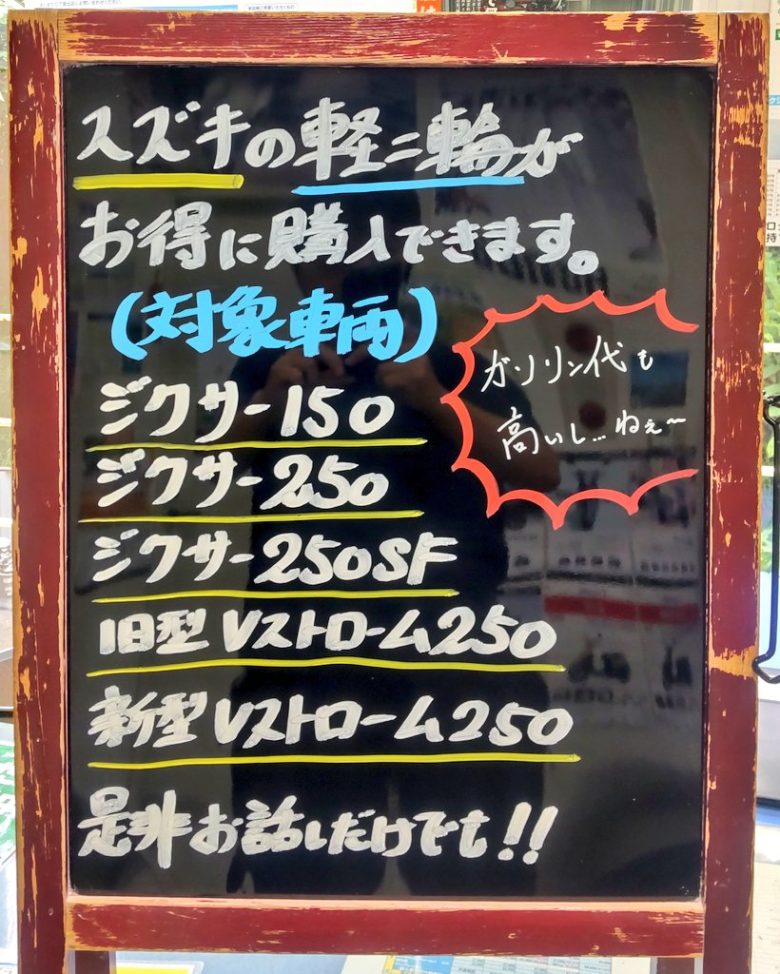 スズキの軽二輪が
お得に購入できます。
(対象車両)
ガソリン代も
高いし…ねぇ〜
ジクサー150
ジクサー250
ジクサー250SF
旧型Vストローム250
新型Vストローム250
是非お話しだけでも!!